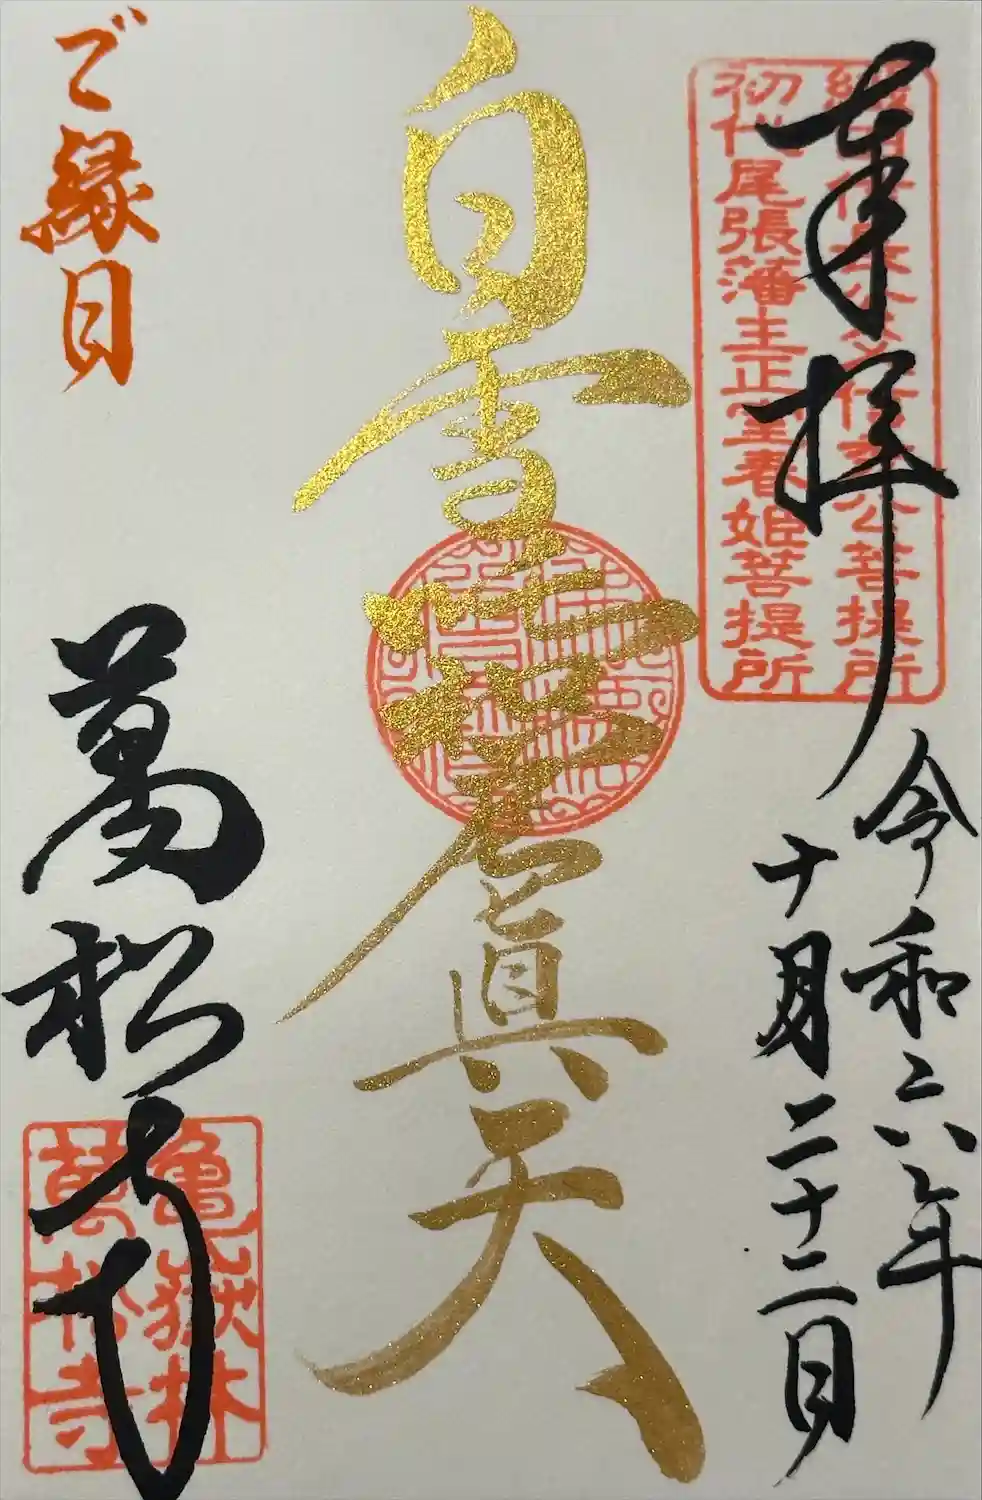 奉拝
織田信長公父信秀公菩提所
初代尾張藩主正室春姫菩提所
令和六年
十月二十二日
白雪吒枳眞天
ご縁日
萬松寺
亀嶽林
萬松寺